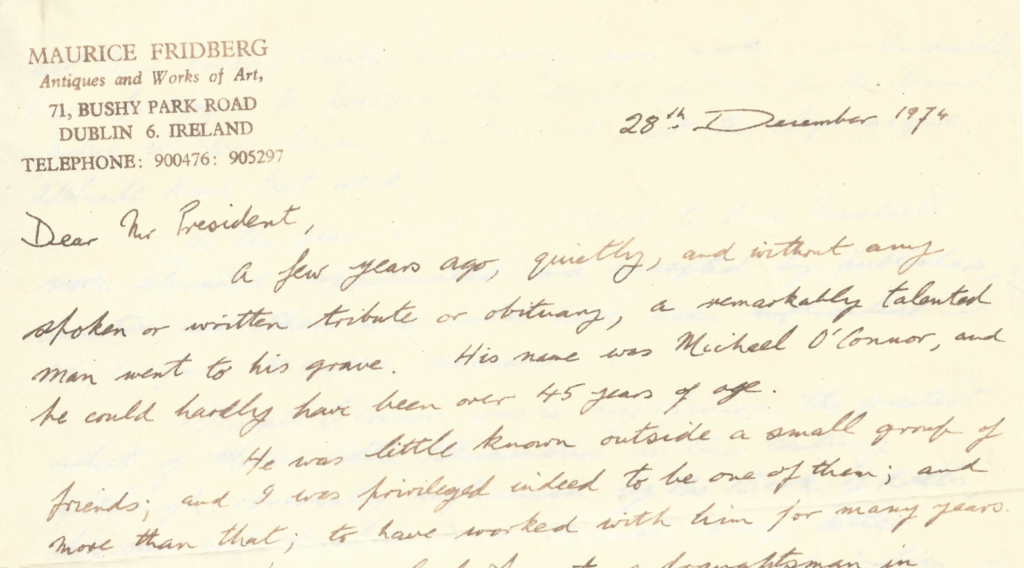 MAURICE FRIDBERG
Antiques and Works of Art,
71, BUSHY PARK ROAD
DUBLIN 6. IRELAND
TELEPHONE: 900476: 905297
28th December 1974
Dear Mr President,
A few years ago, quietly, and without any
spoken or written tribute or obituary, a remarkably talented
man went to his grave. His name was Michael O'Connor, and
he could hardly have been over 45 years of age.
He was little known outside a small group of
friends; and I was privileged indeed to be one of them; and
more than that; to have worked with him for many years.
draughtsman in